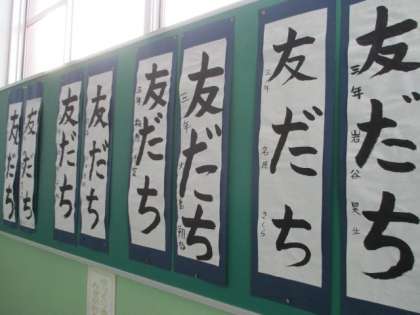 友だち
三年 岩谷
友だち
三年 名原 さくら
友だち
三年
友だち
三年
友だち
友だち
友だち
友だち